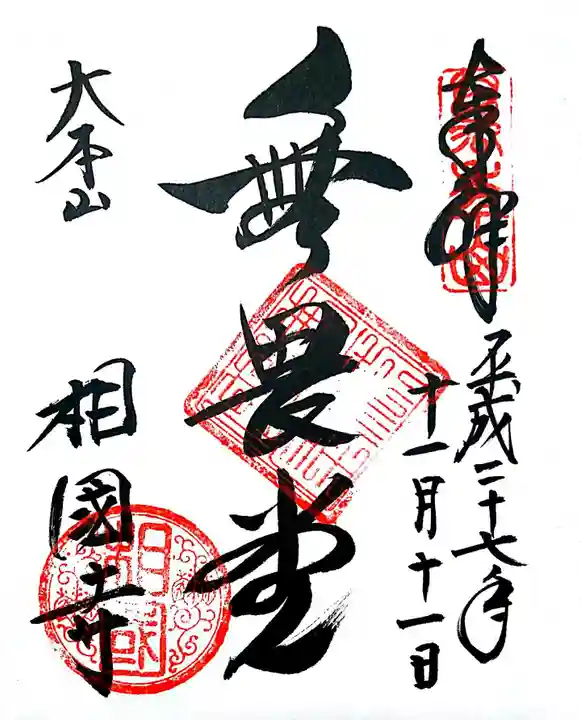 奉拝
平成二十七年
十一月十一日
無畏堂
大本山
相國寺
相国